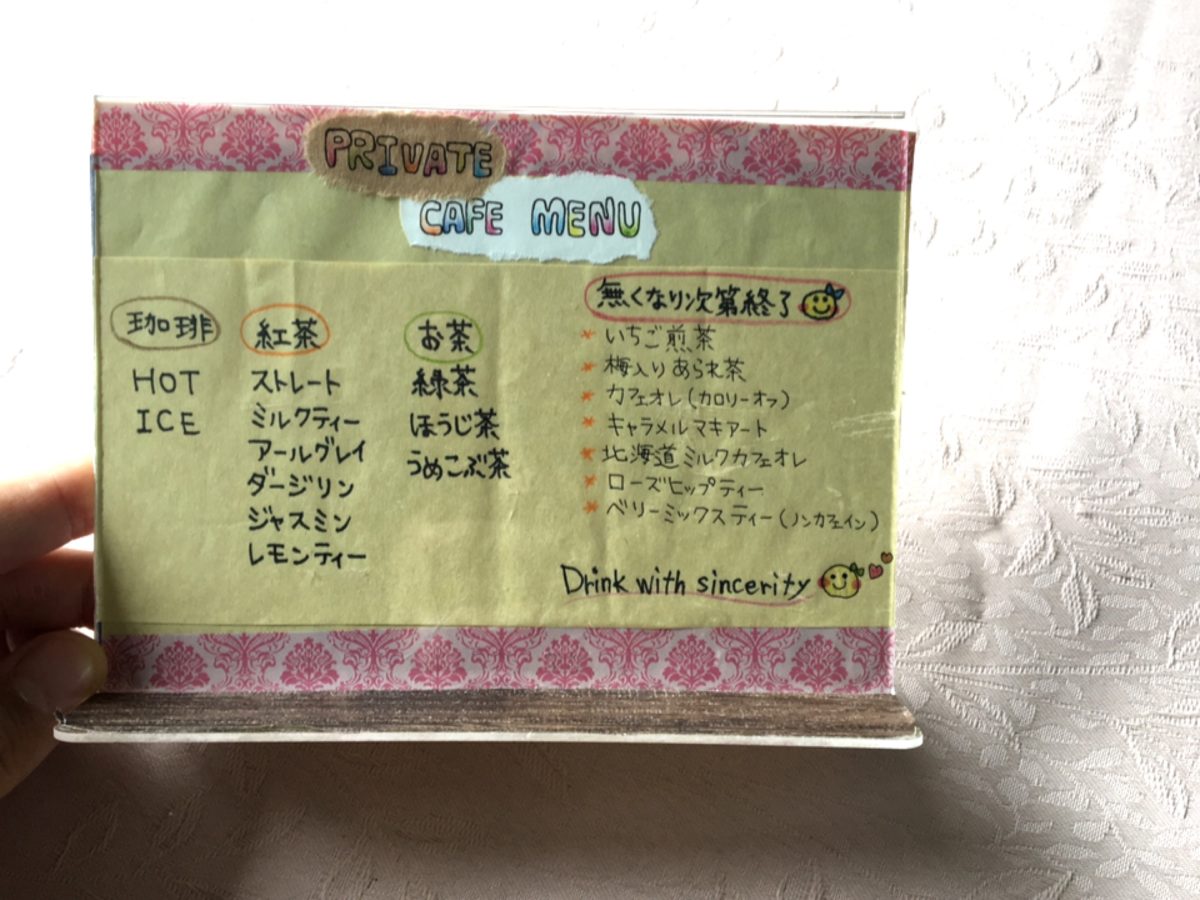 PRIVATE
CAFE MENU
珈琲
HOT
ICE
紅茶
ストレート
ミルクティー
アールグレイ
ダージリン
ジャスミン
レモンティー
お茶
緑茶
ほうじ茶
うめこぶ茶
無くなり次第終了
* いちご煎茶
* 梅入りあられ茶
* カフェオレ(カロリーオフ)
* キャラメルマキアート
* 北海道ミルクカフェオレ
* ローズヒップティー
* ベリーミックスティー(ノンカフェイン)
Drink with sincerity